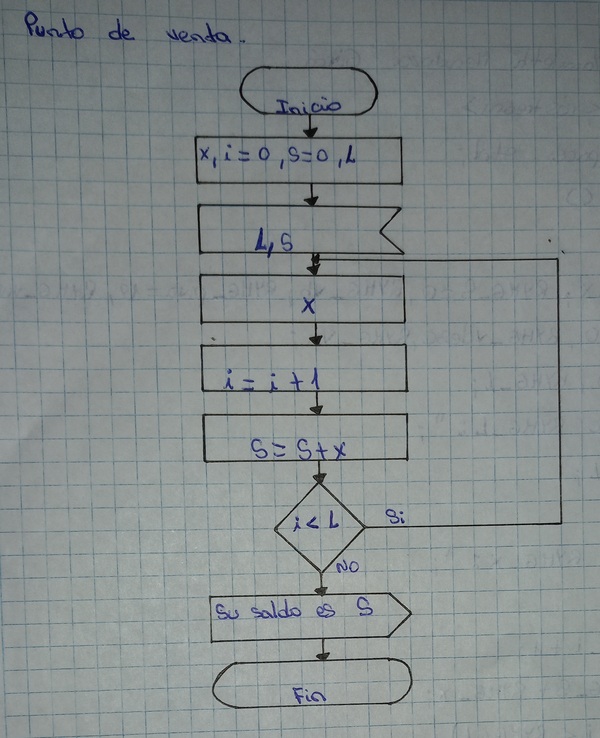 Punto de venta.
Inicio
x, i = 0, S=0, L
L, S
x
i = i + 1
S = S + x
i < L
Si
NO
Su saldo es S
Fin